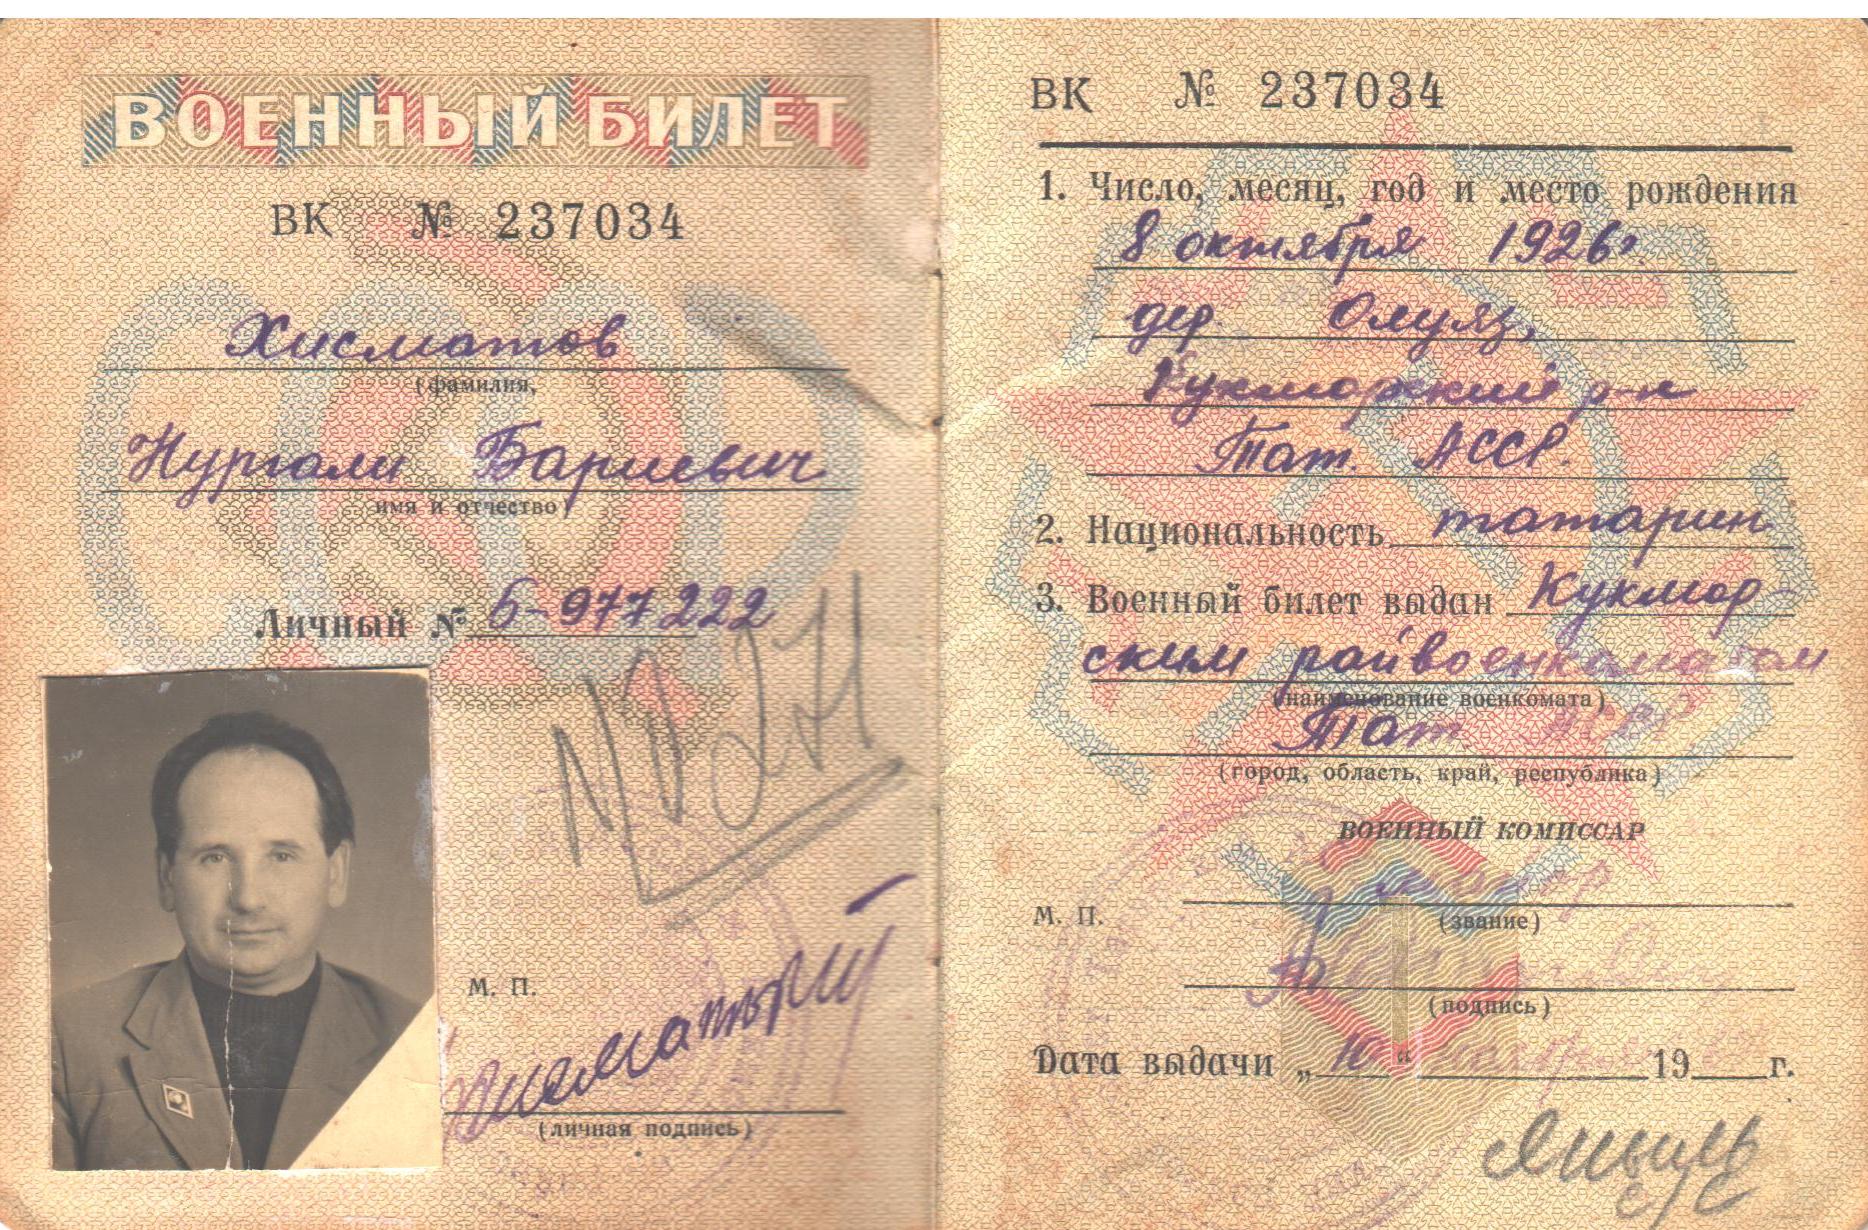 ВОЕННЫЙ БИЛЕТ
ВК № 237034
Хисматов
(фамилия,
Нургали Бариевич
имя и отчество)
Личный № Б-977222
М. П.
(личная подпись)
ВК № 237034
1. Число, месяц, год и место рождения
8 октября 1926 г.
дер. Олуяз,
Кукморский р-н
Тат. АССР.
2. Национальность татарин
3. Военный билет выдан Кукмор-
ским райвоенкоматом
(наименование военкомата)
Тат. АССР
(город, область, край, республика)
ВОЕННЫЙ КОМИССАР
М. П.
(звание)
(подпись)
Дата выдачи „10“ 19 г.